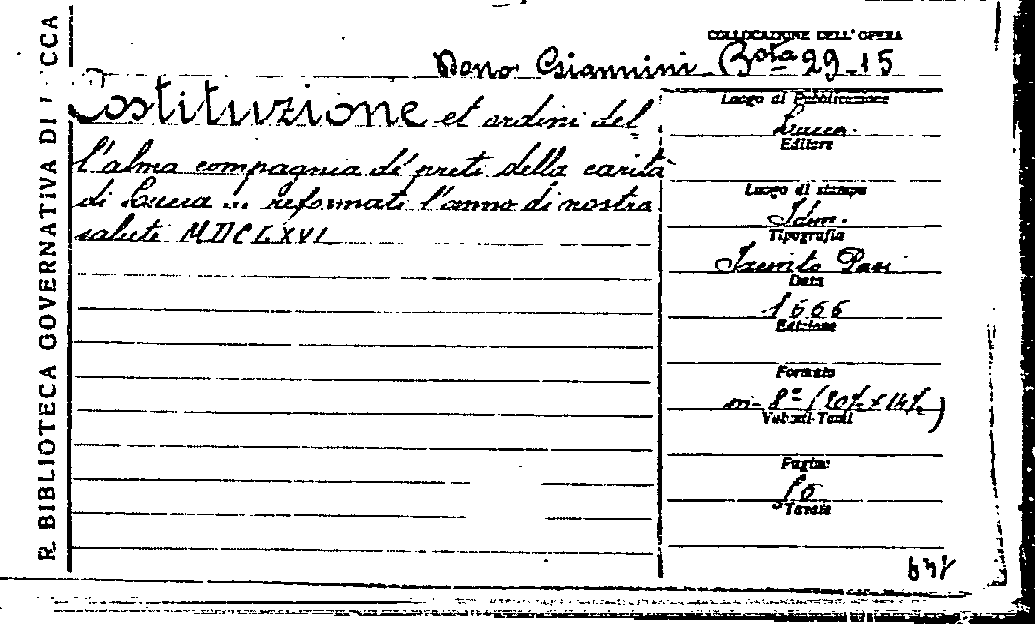 R. BIBLIOTECA GOVERNATIVA DI CCA
COLLOCAZIONE DELL' OPERA
Dono Giannini Bsta 29-15
Costituzione et ordini del
l'alma compagnia de' preti della carità
di Lucca ... reformati l'anno di nostra
salute MDCLXVI
Luogo di Pubblicazione
Lucca.
Editore
Luogo di stampa
Idem.
Tipografia
Iacinto Paci
Data
1666
Edizione
Formato
in-8º (20½ x 14½)
Volumi-Tomi
Pagine
Tavole